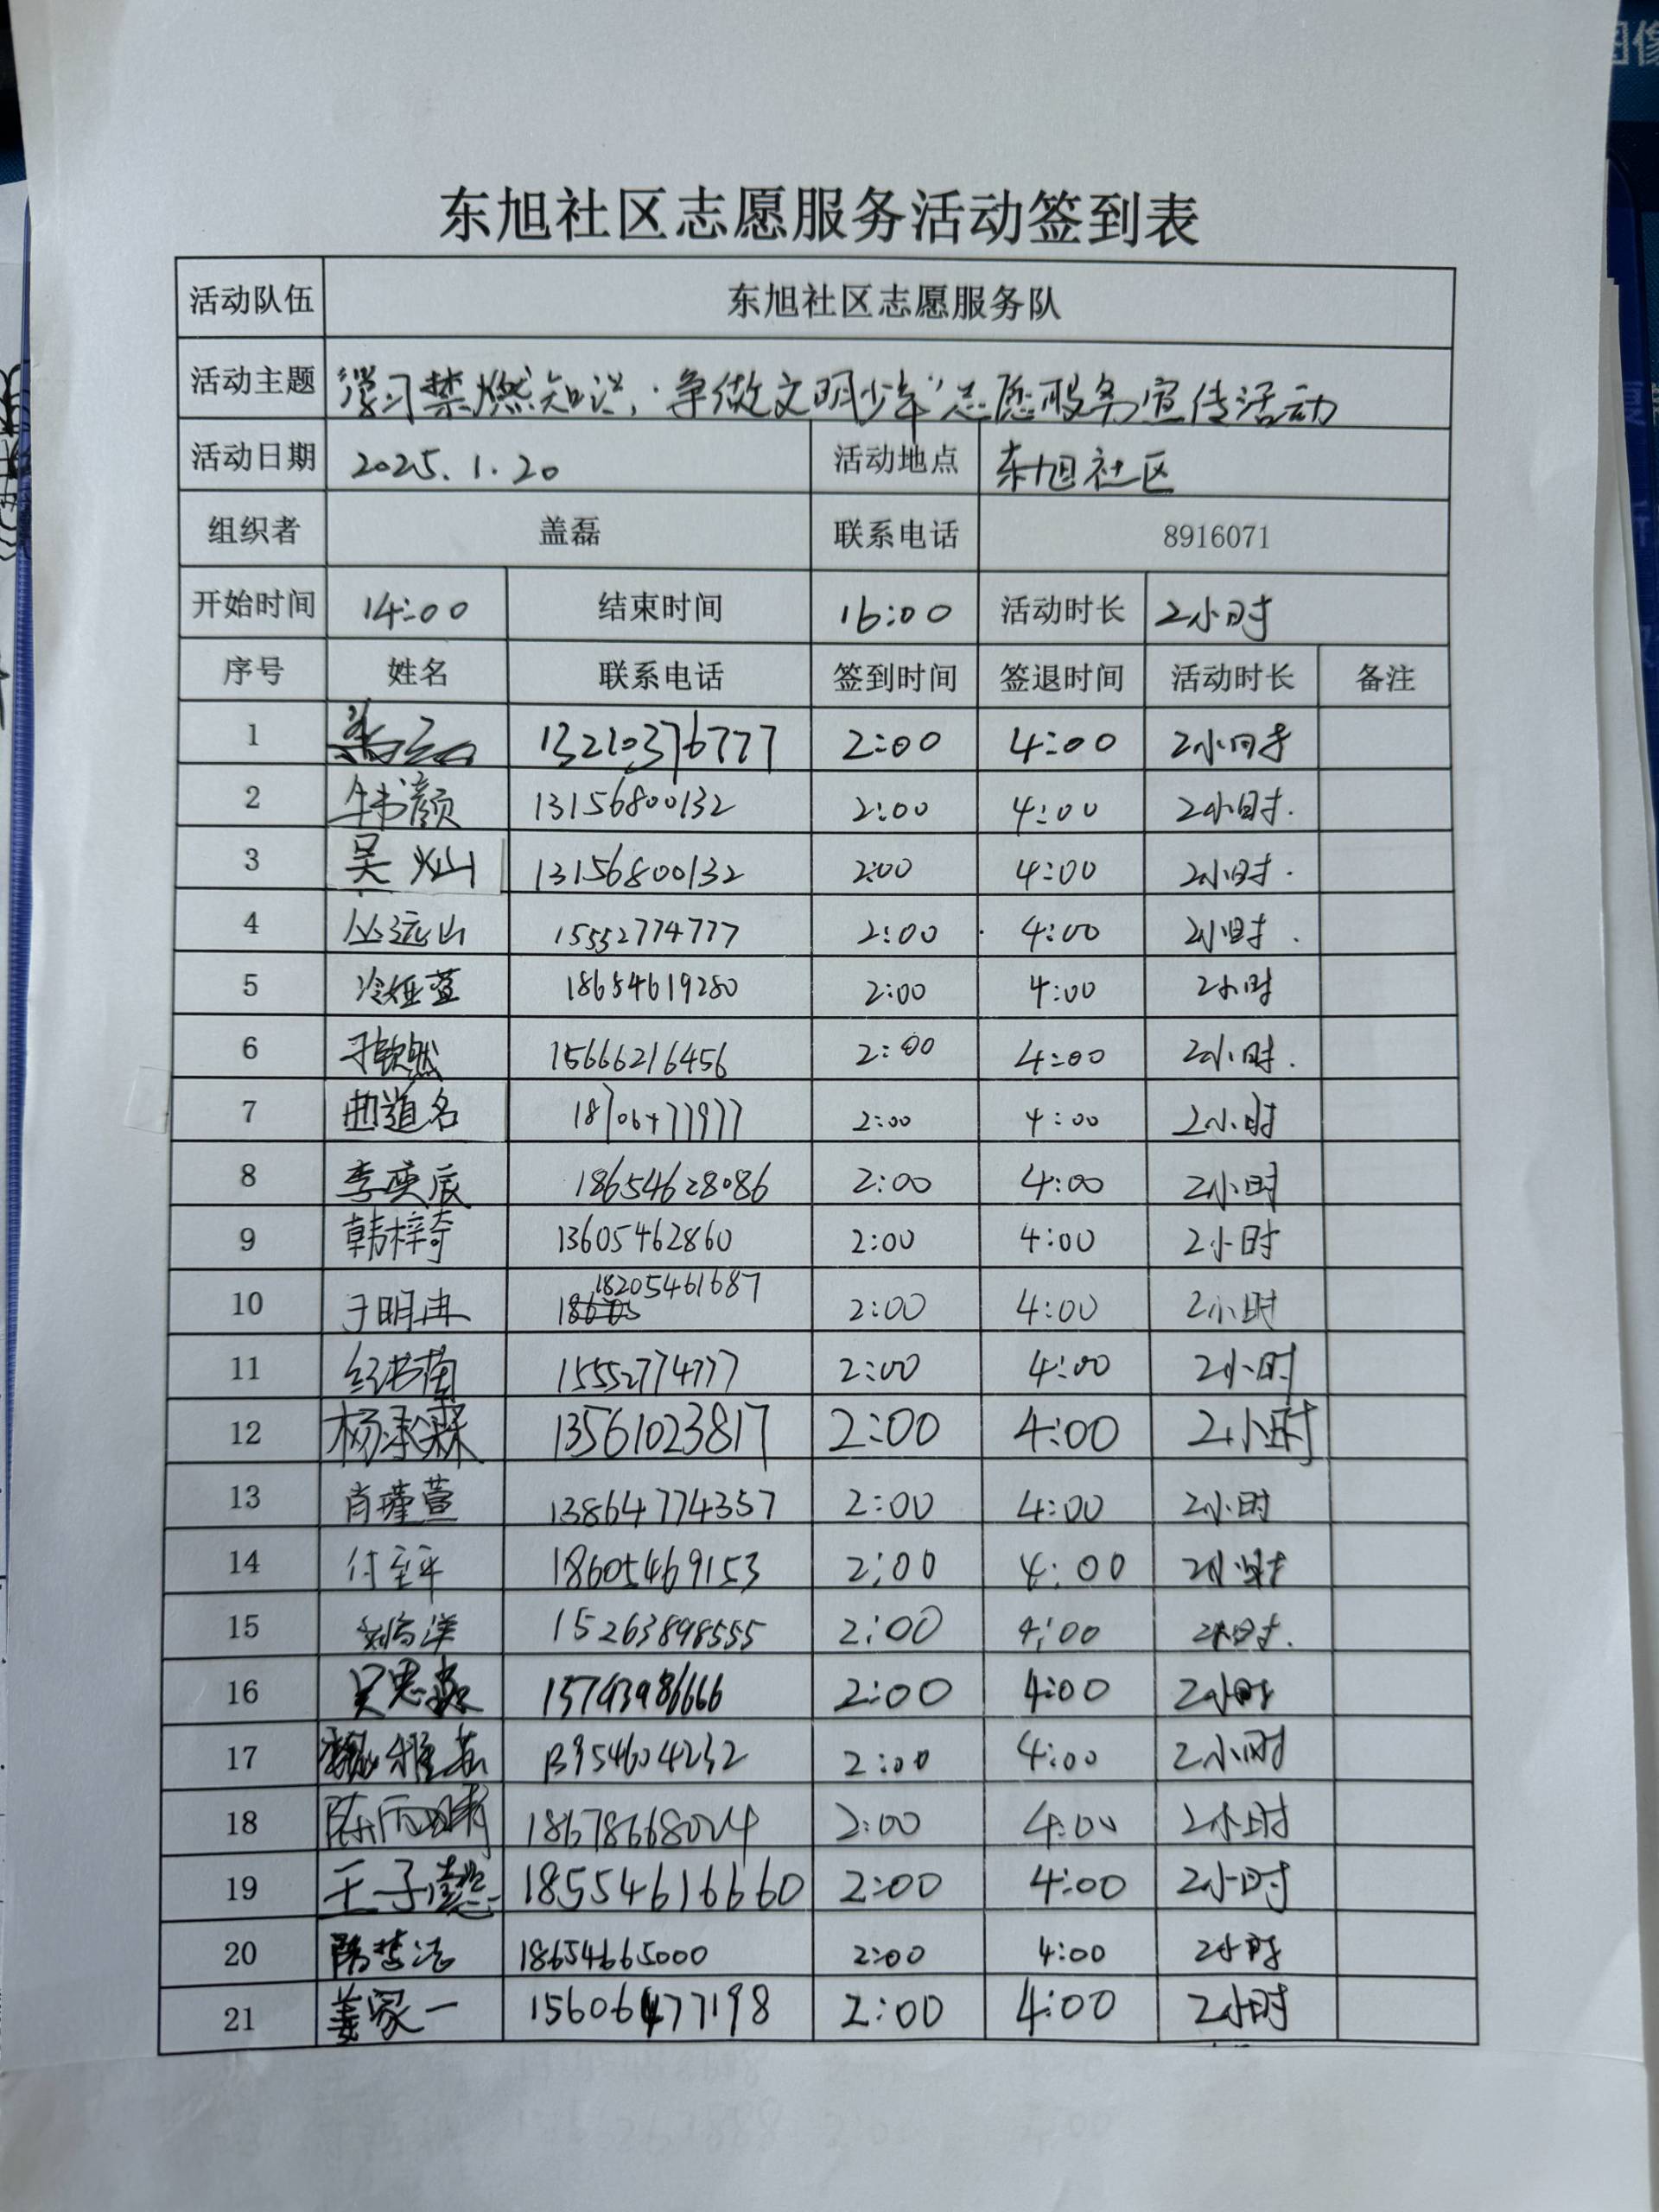 东旭社区志愿服务活动签到表
活动队伍 东旭社区志愿服务队
活动主题 学习禁燃知识,争做文明少年”志愿服务宣传活动
活动日期 2025.1.20 活动地点 东旭社区
组织者 盖磊 联系电话 8916071
开始时间 14:00 结束时间 16:00 活动时长 2小时
序号 姓名 联系电话 签到时间 签退时间 活动时长 备注
1 13210376777 2:00 4:00 2小时
2 牛书颜 13156800132 2:00 4:00 2小时.
3 吴灿 13156800132 2:00 4:00 2小时.
4 丛远山 15552774777 2:00 4:00 2小时.
5 冷娅萱 18654619280 2:00 4:00 2小时
6 于钦然 15666216456 2:00 4:00 2小时.
7 曲道名 18706477977 2:00 4:00 2小时
8 李奕辰 18654628086 2:00 4:00 2小时
9 韩梓奇 13605462860 2:00 4:00 2小时
10 于明冉 18205461687 2:00 4:00 2小时
11 15552774777 2:00 4:00 2小时
12 杨承霖 13561023817 2:00 4:00 2小时
13 肖瑾萱 13864774357 2:00 4:00 2小时
14 18605469153 2:00 4:00 2小时
15 15263898555 2:00 4:00 2小时.
16 15743986666 2:00 4:00 2小时
17 魏雅茹 13954604232 2:00 4:00 2小时
18 陈雨晴 18678668024 2:00 4:00 2小时
19 王子懿 18554616660 2:00 4:00 2小时
20 18654665000 2:00 4:00 2小时
21 姜家一 15606477198 2:00 4:00 2小时